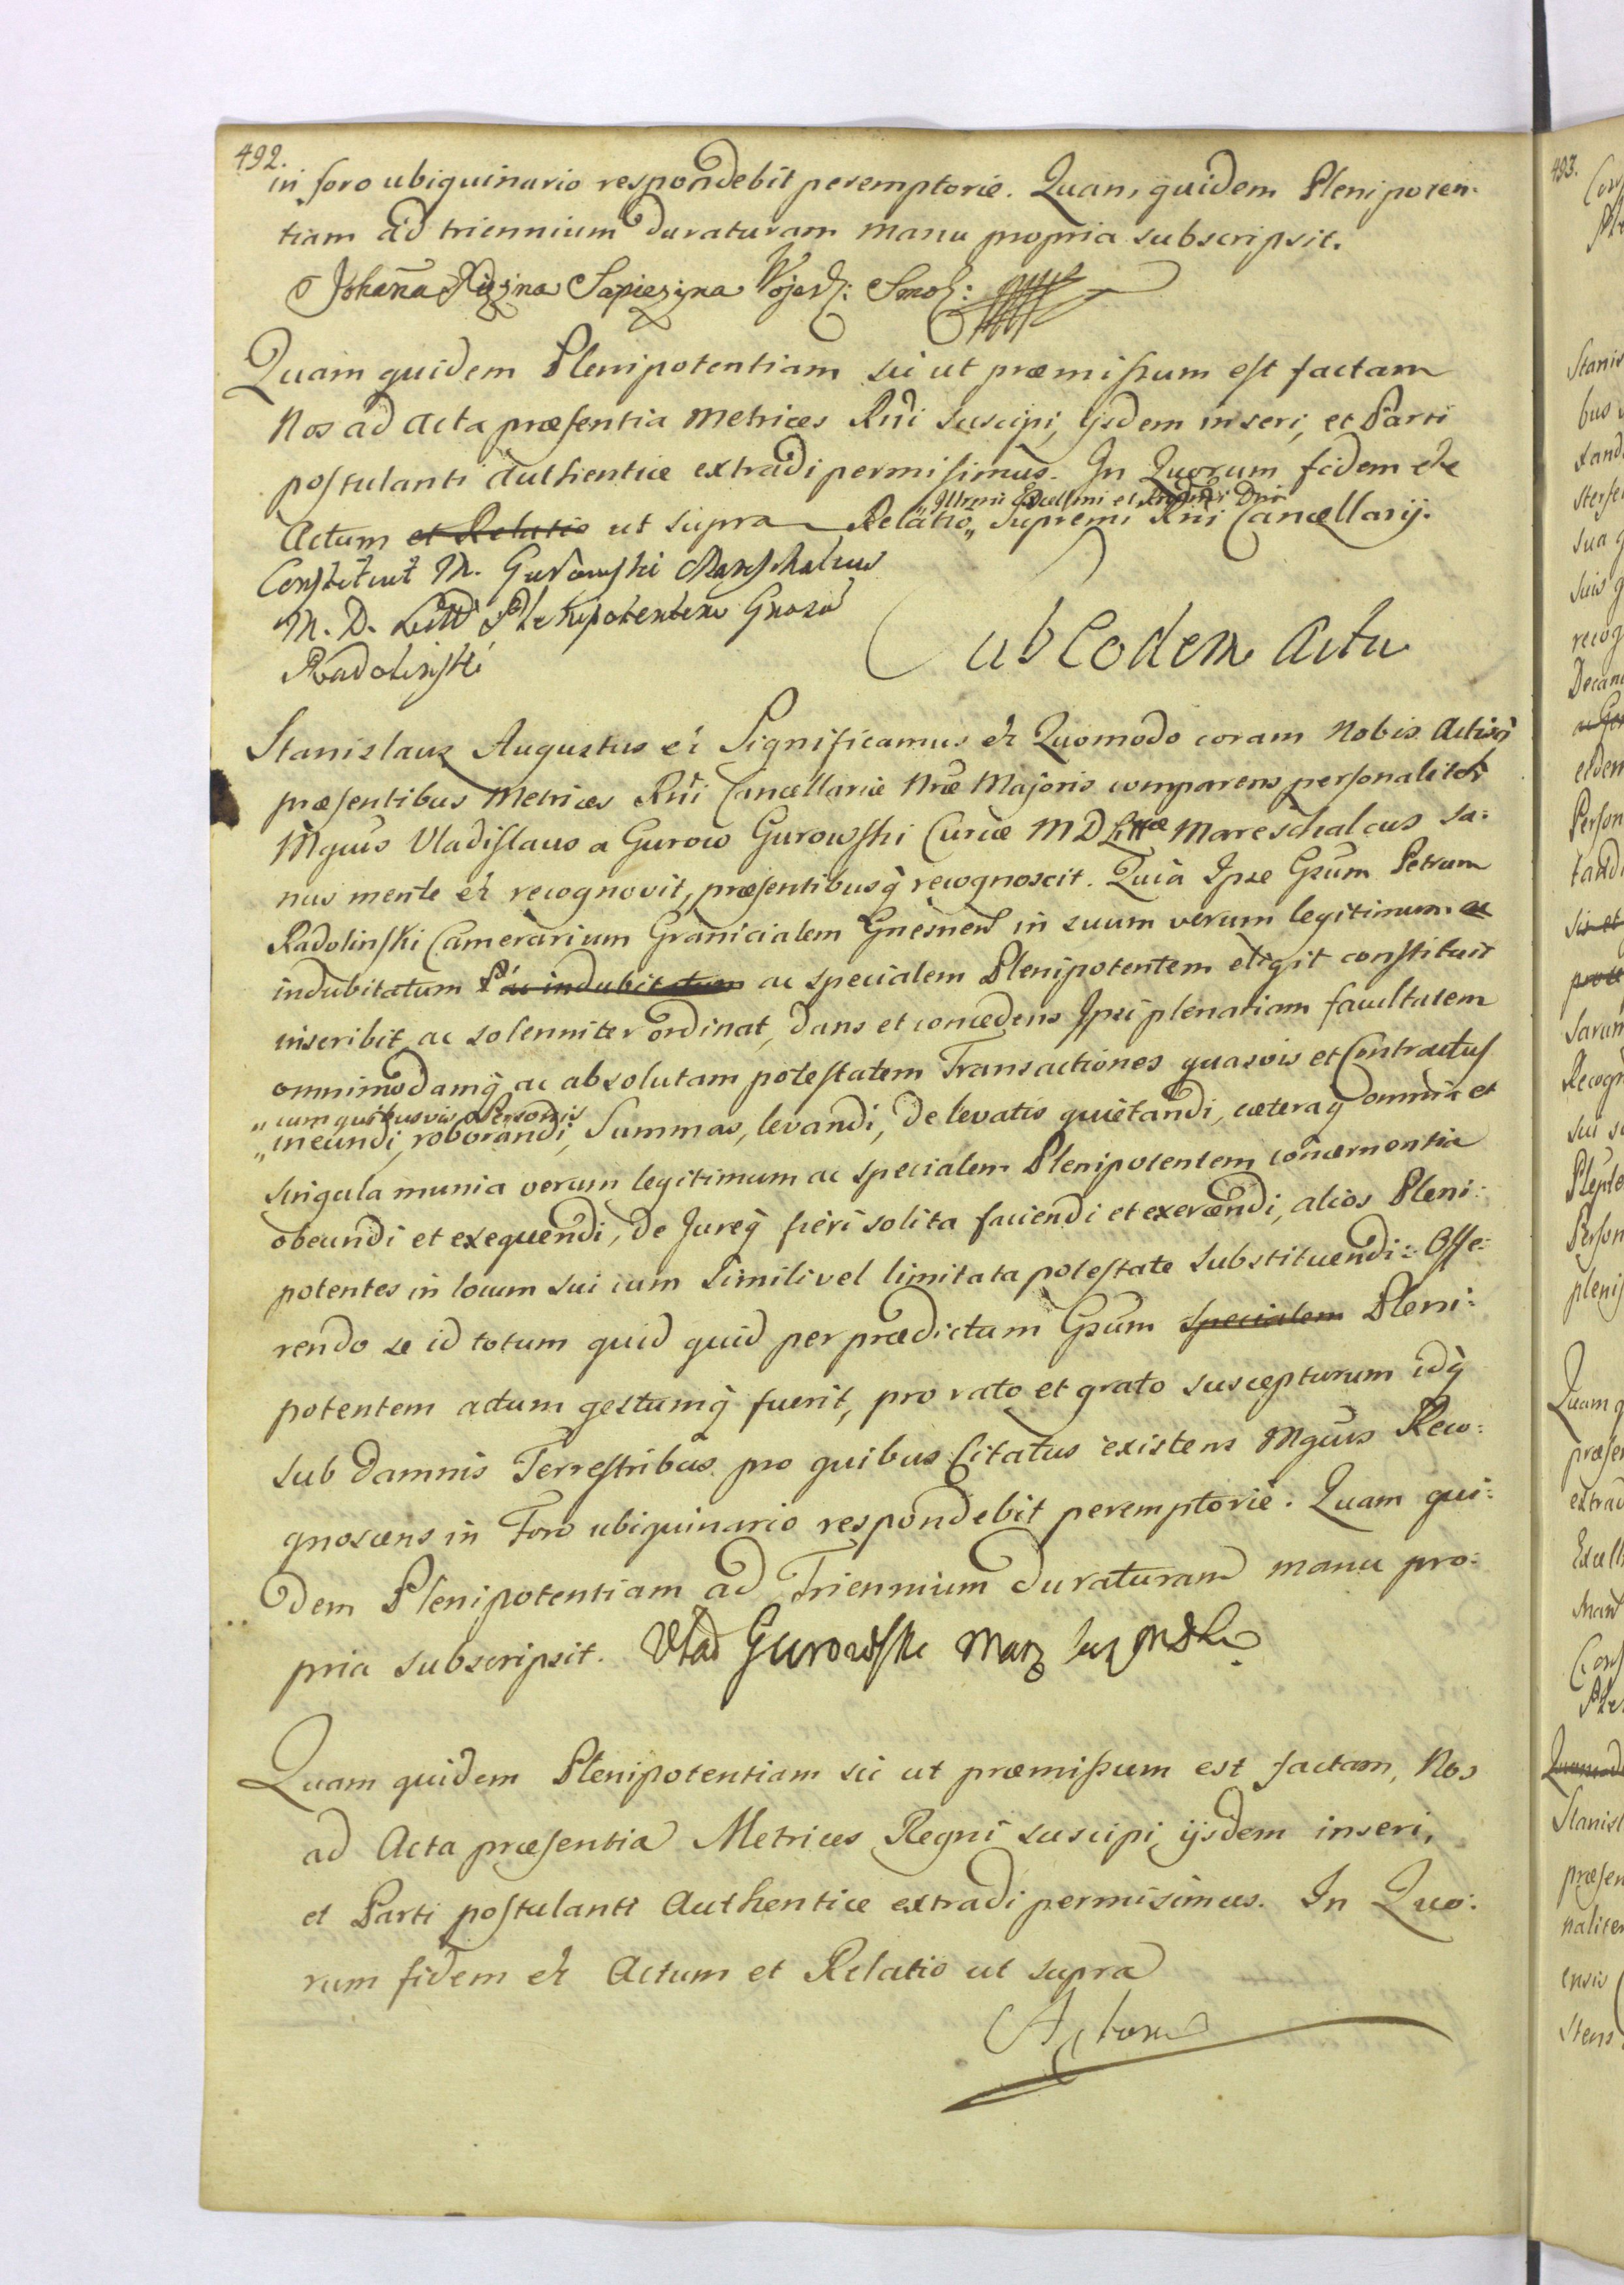 492.
in foro ubiquinario respondebit peremptorie. Quam quidem Plenipoten-
tiam ad triennium duraturam manu propria subscripsit.
Johaña Xiężna Sapieżyna Wojed: Smol:
Quam quidem Plenipotentiam sic ut præmissum est factam
Nos ad acta præsentia Metrices Rñi suscipi, ijsdem inseri, et Parti
postulanti authentice extradi permisimus. In Quorum fidem etc
Illmi Excellmi et Dñi
Actum et Relatio ut supra Relatio „ Supremi Rñi Cancellarij.
Constituit M. Gurowski Mareschalcus
M. D. Litt Plenipotentem Gnosū
Radoliński
Sub Eodem Actu
Stanislaus Augustus etc Significamus etc Quomodo coram Nobis Actisq̃
præsentibus Metrices Rñi Cancellariæ Nræ Majoris comparens personaliter
Mgcus Vladislaus a Gurow Gurowski Curiæ M D Littæ Mareschalcus sa:
nus mente etc recognovit, præsentibusq̃ recognoscit. Quia Ipse Gsum Petrum
Radolinski Camerarium Granicialem Gnesnen in suum verum legitimum ac
indubitatum P ac indubitatum ac specialem Plenipotentem eligit constituit
inscribit ac solenniter ordinat, dans et concedens Ipsi plenariam facultatem
omnimodamq̃ ac absolutam potestatem Transactiones quasvis et Contractus
„ cum quibusvis Personis
„ ineundi, roborandi, Summas, levandi, de levatis quietandi, cæteraq̃ omnia et
singula munia verum legitimum ac specialem Plenipotentem concernentia
obeundi et exequendi, de Jureq̃ fieri solita faciendi et exercendi, alios Pleni:
potentes in locum sui cum simili vel limitata potestate substituendi: Offe:
rendo se id totum quid quid per prædictum Gsum specialem Pleni:
potentem actum gestumq̃ fuerit, pro rato et grato suscepturum idq̃
sub damnis Terrestribus pro quibus Citatus existens Mgcus Reco:
gnoscens in Foro ubiquinario respondebit peremptorie. Quam qui:
dem Plenipotentiam ad Triennium duraturam manu pro:
pria subscripsit. Vlad Gurowski Marz
Quam quidem Plenipotentiam sic ut præmissum est factam, Nos
ad Acta præsentia Metrices Regni suscipi ijsdem inseri,
et Parti postulanti Authentice extradi permisimus. In Quo:
rum fidem etc Actum et Relatio ut supra
493.